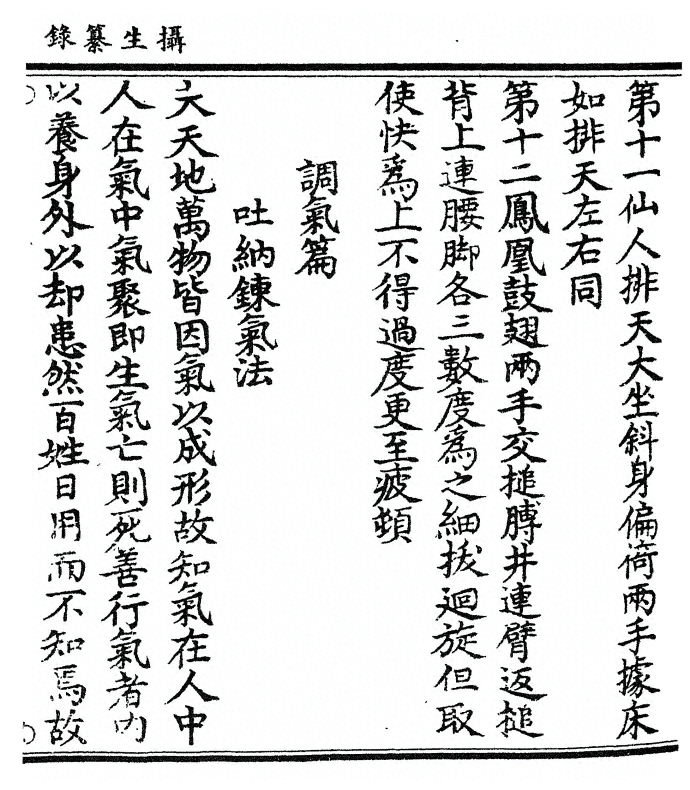 攝生纂錄
第十一仙人排天大坐斜身偏倚兩手據床
如排天左右同
第十二鳳凰鼓翅兩手交搥膊井連臂返搥
背上連腰脚各三數度為之細拔廻旋但取
使快為上不得過度更至疲頓
調氣篇
吐納鍊氣法
夫天地萬物皆因氣以成形故知氣在人中
人在氣中氣聚即生氣亡則死善行氣者內
以養身外以却患然百姓日用而不知焉故